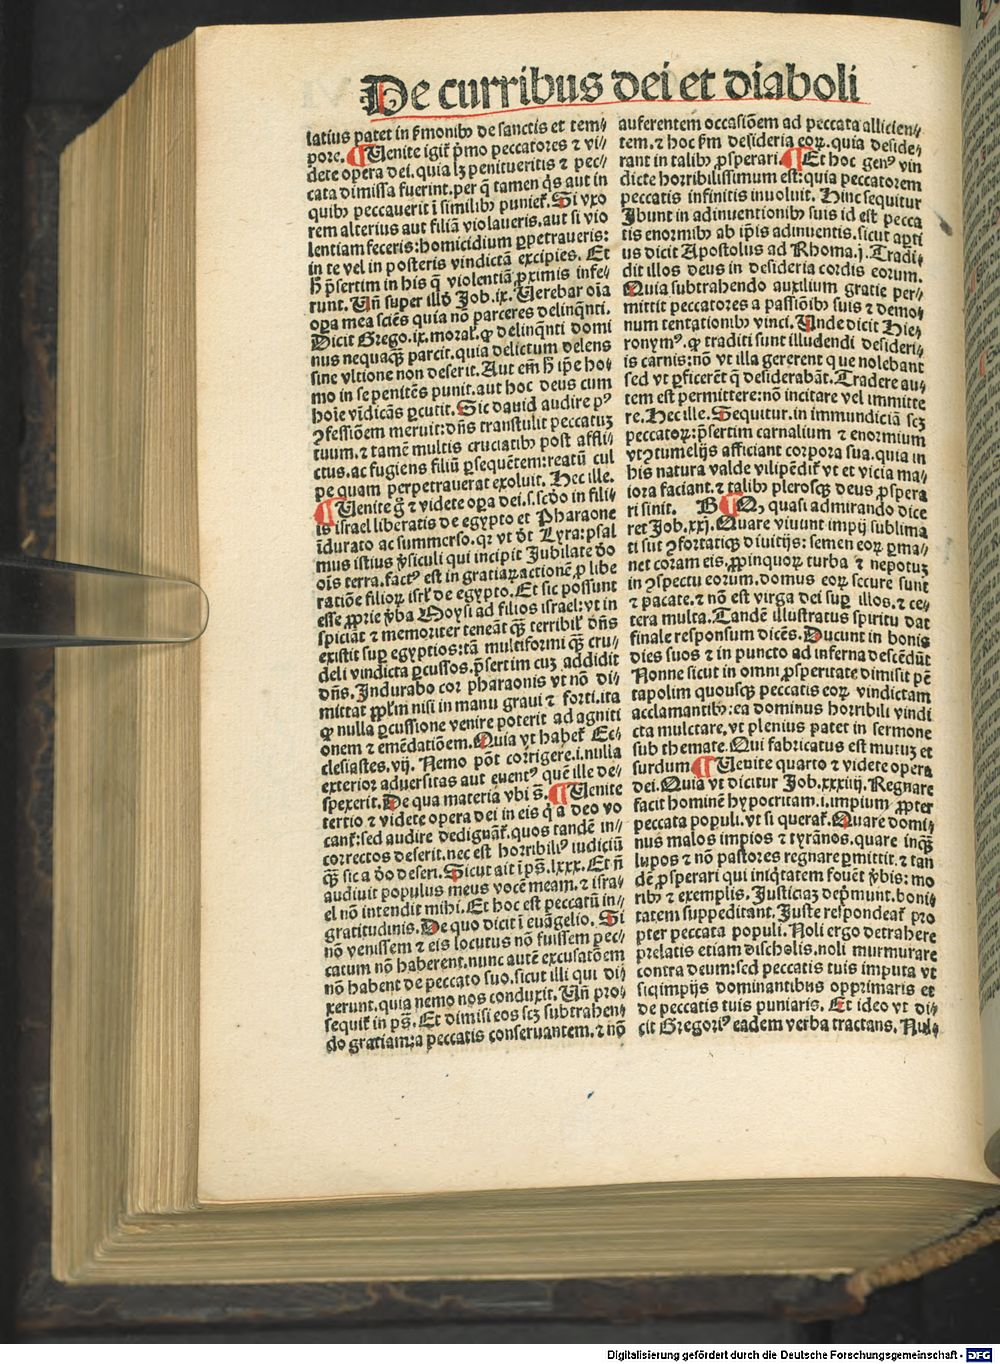 De curribus dei et diaboli
latius patet in p̄monib₉ de sanctis et tem⸗
pore. ¶ Uenite igit̄ p̄mo peccatores ⁊ vi⸗
dete opera dei. quia lꝫ penitueritis ⁊ pec⸗
cata dimissa fuerint. per q̄ tamen q̇s aut in
quib₉ peccauerit ī similib₉ puniet̄. Si vxo
rem alterius aut filiā violaueris. aut si vio
lentiam feceris: homicidium ꝑpetraueris:
in te vel in posteris vindictā excipies. Et
h̄ p̄sertim in his q̄ violentiā ꝓximis infe⸗
runt. Un̄ super illo Job. ix. Uerebar oīa
oꝑa mea sciēs quia nō parceres delinq̄nti.
Dicit Grego. ix. moral̄. ꝙ delinq̄nti domi
nus nequaq̄ꝫ parcit. quia delictum delens
sine vltione non deserit. Aut em̄ h̄ ip̄e ho⸗
mo in se penitēs punit. aut hoc deus cum
hoīe vīdicās ꝑcutit. Sic dauid audire pꝰ
ꝯfessiōem meruit: dn̄s transtulit peccatuꝫ
tuum. ⁊ tamē multis cruciatib₉ post affli⸗
ctus. ac fugiens filiū ꝑsequētem: reatū cul
pe quam perpetrauerat exoluit. Hec ille.
¶ Uenite g̊ ⁊ videte oꝑa dei. s. scd̄o in fili⸗
is israel liberatis de egypto et Pharaone
īdurato ac summerso. qꝛ vt dt̄ Lyra: psal
mus istius v̄siculi qui incipit Jubilate dō
oīs terra. factꝰ est in gratiaꝝ actionē ꝓ libe
ratiōe filioꝝ isrl̄ de egypto. Et sic possunt
esse ꝓprie v̄ba Moysi ad filios israel: vt in
spiciāt ⁊ memoriter teneāt q̄ꝫ terribil̄ dn̄s
existit suꝑ egyptios: tā multiformi q̄ꝫ cru⸗
deli vindicta ꝑcussos. p̄sertim cuꝫ addidit
dn̄s. Indurabo cor pharaonis vt nō di⸗
mittat ppl̄m nisi in manu graui ⁊ forti. ita
ꝙ nulla ꝑcussione venire poterit ad agniti
onem ⁊ emēdatiōem. Quia vt habet̄ Ec⸗
clesiastes. vij. Nemo pōt corrigere. i. nulla
exterior aduersitas aut euentꝰ quē ille de⸗
spexerit. De qua materia vbi s̄. ¶ Uenite
tertio ⁊ videte opera dei in eis q̇ a deo vo
cant̄: sed audire dedignāt̄. quos tandē in⸗
correctos deserit. nec est horribiliꝰ iudiciū
q̄ꝫ sic a dō deseri. Sicut ait ī ps̄. lxxx. Et n̄
audiuit populus meus vocē meam. ⁊ isra⸗
el nō intendit mihi. Et hoc est peccatū in⸗
gratitudinis. De quo dicit ī euāgelio. Si
nō venissem ⁊ eis locutus nō fuissem pec⸗
catum nō haberent. nunc autē excusatōem
nō habent de peccato suo. sicut illi qui di⸗
xerunt. quia nemo nos conduxit. Un̄ pro⸗
sequit̄ in ps̄. Et dimisi eos scꝫ subtrahen⸗
do gratiam: a peccatis conseruantem. ⁊ nō
auferentem occasiōem ad peccata allicien⸗
tem. ⁊ hoc ẜm desideria eoꝝ. quia deside⸗
rant in talib₉ ꝓsperari. ¶ Et hoc genꝰ vin
dicte horribilissimum est: quia peccatorem
peccatis infinitis inuoluit. Hinc sequitur
Ibunt in adinuentionib₉ suis id est pecca
tis enormib₉ ab ip̄is adinuentis. sicut aꝑti
us dicit Apostolus ad Rhoma. j. Tradi⸗
dit illos deus in desideria cordis eorum.
Quia subtrahendo auxilium gratie per⸗
mittit peccatores a passiōib₉ suis ⁊ demo⸗
num tentationib₉ vinci. Unde dicit Hie⸗
ronymꝰ. ꝙ traditi sunt illudendi desideri⸗
is carnis: nō vt illa gererent que nolebant
sed vt ꝑficerēt q̄ desiderabāt. Tradere au⸗
tem est permittere: nō incitare vel immitte
re. Hec ille. Sequitur. in immundiciā scꝫ
peccatoꝝ: p̄sertim carnalium ⁊ enormium
vt ꝯtumelijs afficiant corpora sua. quia in
his natura valde vilipēdit̄ vt et vicia ma⸗
iora faciant. ⁊ talib₉ plerosqꝫ deus ꝓspera
ri sinit. B ¶ Q, quasi admirando dice
ret Job. xxj. Quare viuunt impij sublima
ti sūt ꝯfortatiqꝫ diuitijs: semen eoꝝ ꝑma⸗
net coram eis. ꝓpinquoꝝ turba ⁊ nepotuꝫ
in ꝯspectu eorum. domus eoꝝ secure sunt
⁊ pacate. ⁊ nō est virga dei suꝑ illos. ⁊ ce⸗
tera multa. Tandē illustratus spiritu dat
finale responsum dicēs. Ducunt in bonis
dies suos ⁊ in puncto ad inferna descēdūt
Nonne sicut in omni ꝓsperitate dimisit pē
tapolim quousqꝫ peccatis eoꝝ vindictam
acclamantib₉: ea dominus horribili vindi
cta mulctare. vt plenius patet in sermone
sub themate. Qui fabricatus est mutuꝫ et
surdum ¶ Uenite quarto ⁊ videte opera
dei. Quia vt dicitur Job. xxxiiij. Regnare
facit hominē hypocritam. i. impium ꝓpter
peccata populi. vt si querat̄. Quare domi⸗
nus malos impios ⁊ tyrānos. quare inq̄ꝫ
lupos ⁊ nō pastores regnare ꝑmittit. ⁊ tan
dē ꝓsperari qui iniq̇tatem fouēt v̄bis: mo
rib₉ ⁊ exemplis. Justiciaꝫ dep̄munt. boni⸗
tatem suppeditant. Juste respondeat̄ pro
pter peccata populi. Noli ergo detrahere
prelatis etiam discholis. noli murmurare
contra deum: sed peccatis tuis imputa vt
sic impijs dominantibus opprimaris et
de peccatis tuis puniaris. Et ideo vt di⸗
cit Gregoriꝰ eadem verba tractans. Nul⸗
Digitalisierung gefördert durch die Deutsche Forschungsgemeinschaft - DFG